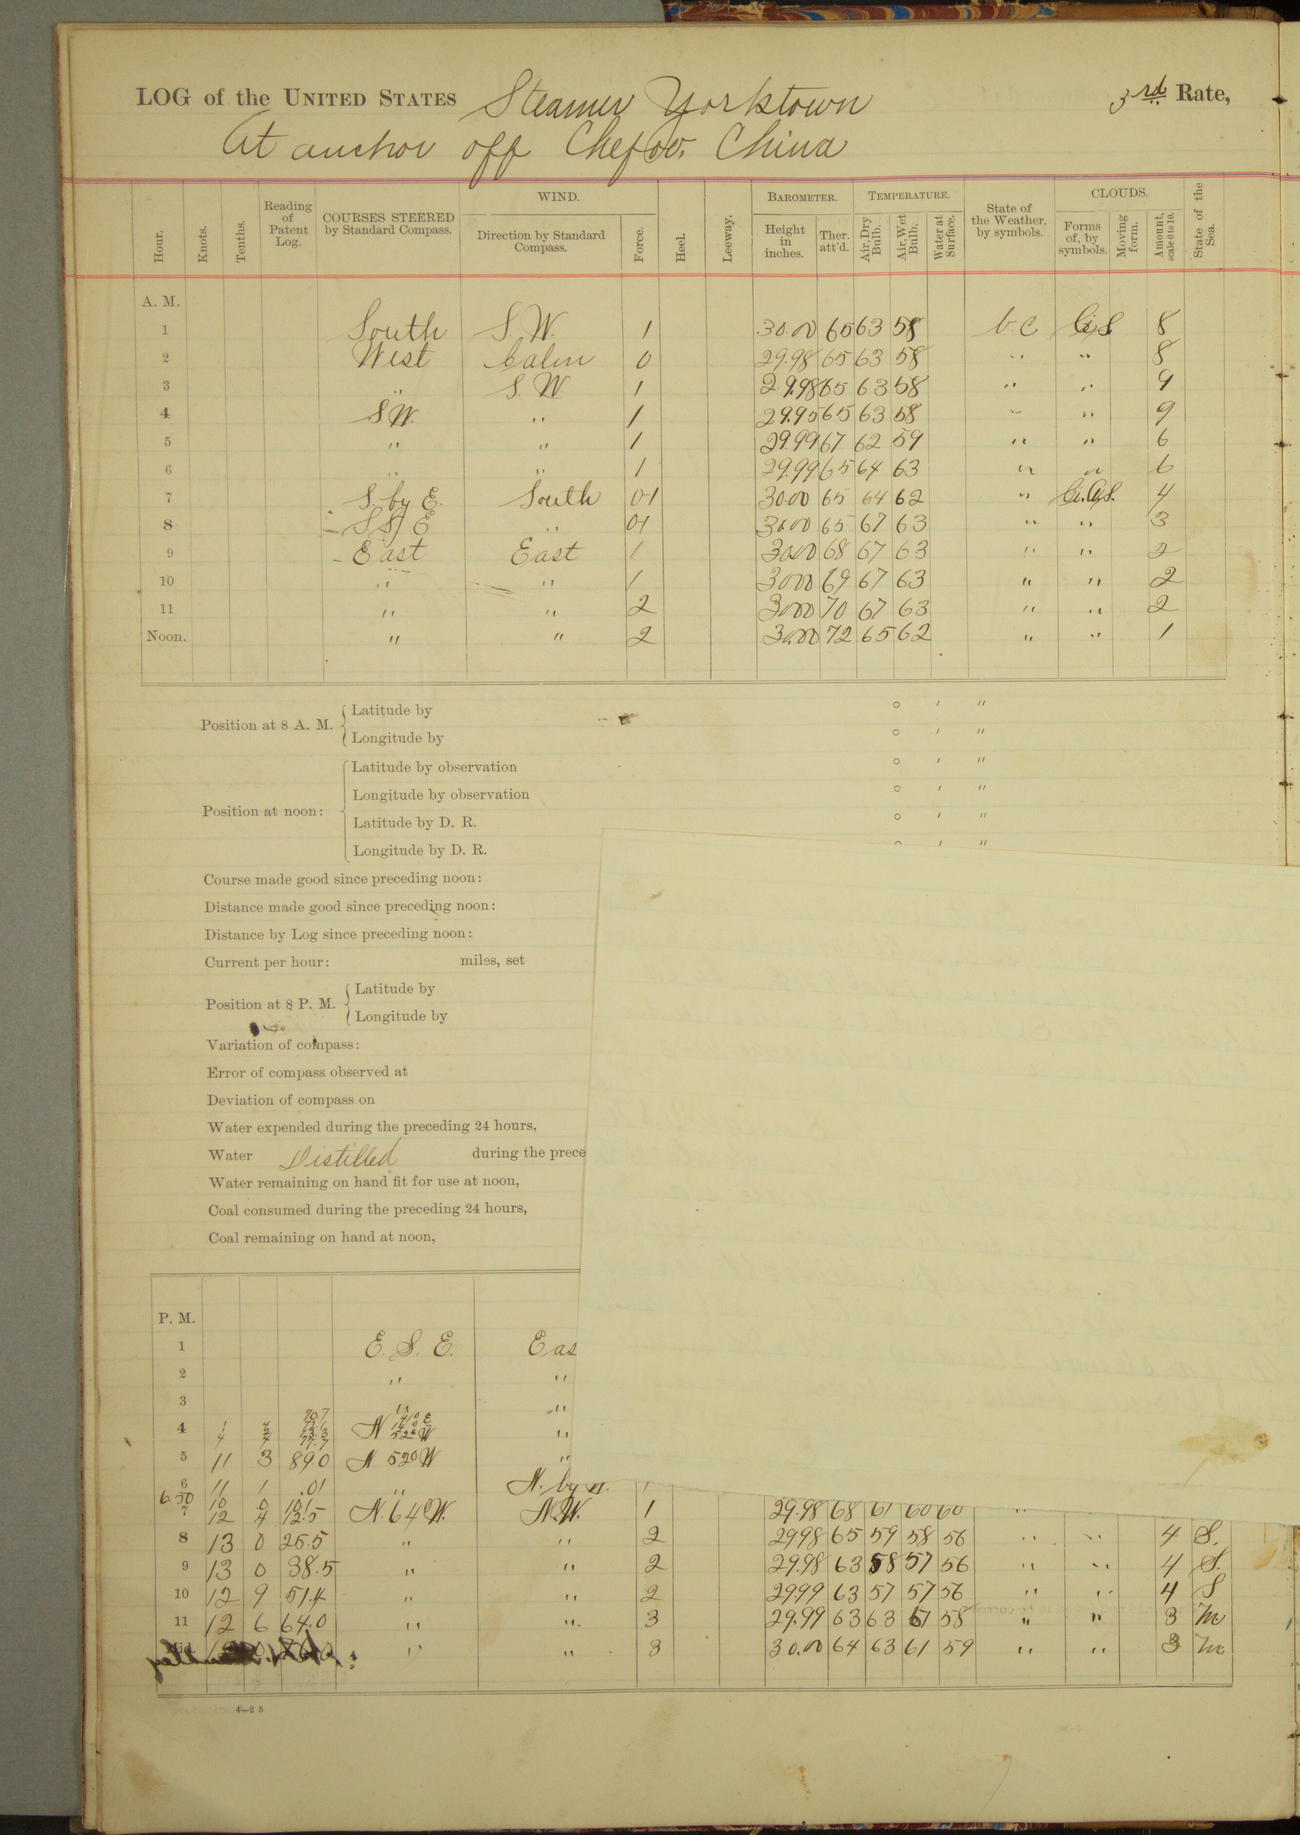 LOG of the UNITED STATES Steamer Yorktown 3rd Rate,
At anchor off Chefoo. China
Hour. Knots. Tenths. Reading of Patent Log. COURSES STEERED by Standard Compass. WIND. Direction by Standard Compass. Force. Heel. Leeway. BAROMETER. Height in inches. Ther. att'd. TEMPERATURE. Air, Dry Bulb. Air, Wet Bulb. Water at Surface. State of the Weather, by symbols. CLOUDS. Forms of, by symbols. Moving form. Amount, scale 0 to 10. State of the Sea.
A. M.
1 South S.W. 1 30.00 65 63 58 b.c Ci.S 8
2 West Calm 0 29.98 65 63 58 " " 8
3 " S.W 1 29.98 65 63 58 " " 9
4 S.W. " 1 29.95 65 63 58 " " 9
5 " " 1 29.99 67 62 59 " " 6
6 " " 1 29.99 65 64 63 " " 6
7 S. by E. South 01 30.00 65 64 62 " 4
8 " 01 30.00 65 67 63 " " 3
9 East East 1 30.00 68 67 63 " " 2
10 " " 1 30.00 69 67 63 " " 2
11 " " 2 30.00 70 67 63 " " 2
Noon. " " 2 30.00 72 65 62 " " 1
Position at 8 A. M. Latitude by ° ' "
Longitude by ° ' "
Position at noon: Latitude by observation ° ' "
Longitude by observation ° ' "
Latitude by D. R. ° ' "
Longitude by D. R. ° ' "
Course made good since preceding noon:
Distance made good since preceding noon:
Distance by Log since preceding noon:
Current per hour: miles, set
Position at 8 P. M. Latitude by
Longitude by
Variation of compass:
Error of compass observed at
Deviation of compass on
Water expended during the preceding 24 hours,
Water Distilled during the prece
Water remaining on hand fit for use at noon,
Coal consumed during the preceding 24 hours,
Coal remaining on hand at noon,
P. M.
1 E. S. E. Eas
2 " "
3 " "
4 N 52° W "
5 11 3 89.0 N 52° W "
6 11 1 .01 " N. by
6.50 10 0 10.1
7 12 4 12.5 N. 64° W. N.W. 1 29.98 68 61 60 60 "
8 13 0 25.5 " " 2 29.98 65 59 58 56 " " 4 S.
9 13 0 38.5 " " 2 29.98 63 58 57 56 " " 4 S.
10 12 9 51.4 " " 2 29.99 63 57 57 56 " " 4 S
11 12 6 64.0 " " 3 29.99 63 63 61 58 " " 3 M
" " 3 30.00 64 63 61 59 " " 3 M
4—25